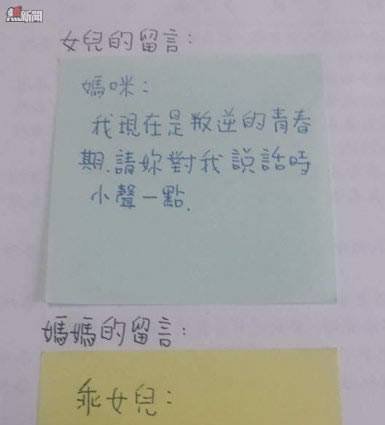 焦新聞
女兒的留言：
媽咪：
我現在是叛逆的青春
期.請妳對我說話時
小聲一點.
媽媽的留言：
乖女兒：